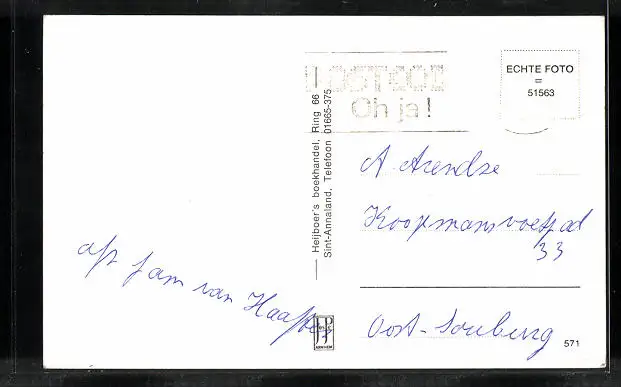 POSTCODE
Oh ja!
ECHTE FOTO
=
51563
Heijboer's boekhandel, Ring 66
Sint-Annaland, Telefoon 01665-375
A. Arendse
Koopmansvoetpad
33
Oost-Souburg
afz fam van Haaften
JP
ARNHEM
571